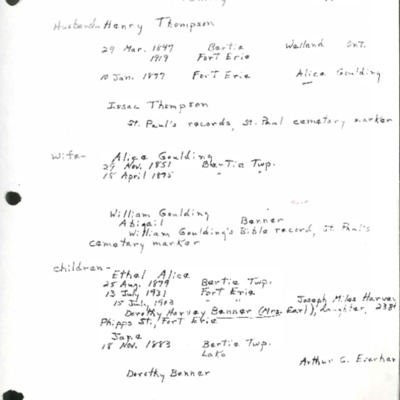 Husband - Henry Thompson
29 Mar. 1847 Bertie Welland Ont.
1919 Fort Erie
10 Jan. 1877 Fort Erie Alice Goulding
Issac Thompson
St. Paul's records, St. Paul cemetary marker
Wife - Alice Goulding
29 Nov. 1851 Bertie Twp.
18 April 1895 " "
William Goulding
Abigail Benner
William Goulding's Bible record, St. Paul's
cemetary marker
Children -
Ethel Alice
25 Aug. 1879 Bertie Twp.
13 July 1931 Fort Erie
15 July 1903 " " Joseph Miles Harvey
Dorothy Harvey Benner (Mrs. Earl), daughter, 238
Phipps St., Fort Erie
Jane
18 Nov. 1883 Bertie Twp.
Arthur G.
Dorothy Benner